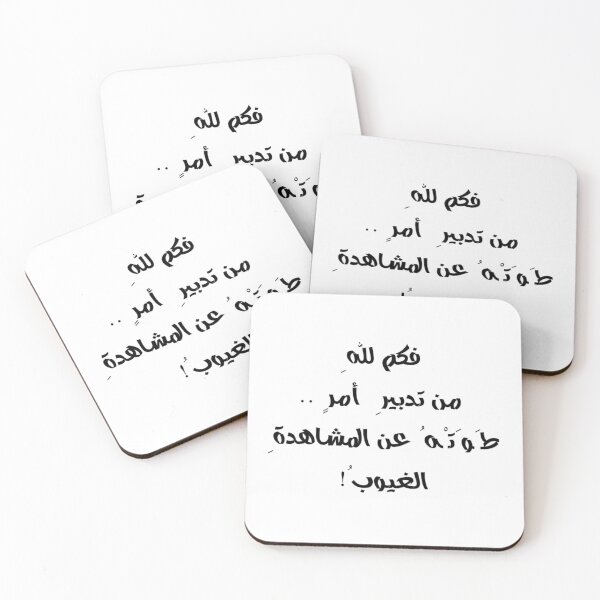 فكم للهِ
من تدبيرِ أمرٍ ..
طَوَتْهُ عن المشاهدةِ
فكم للهِ
من تدبيرِ أمرٍ ..
طَوَتْهُ عن المشاهدةِ
فكم للهِ
من تدبيرِ أمرٍ ..
طَوَتْهُ عن المشاهدةِ
الغيوبُ!
فكم للهِ
من تدبيرِ أمرٍ ..
طَوَتْهُ عن المشاهدةِ
الغيوبُ!